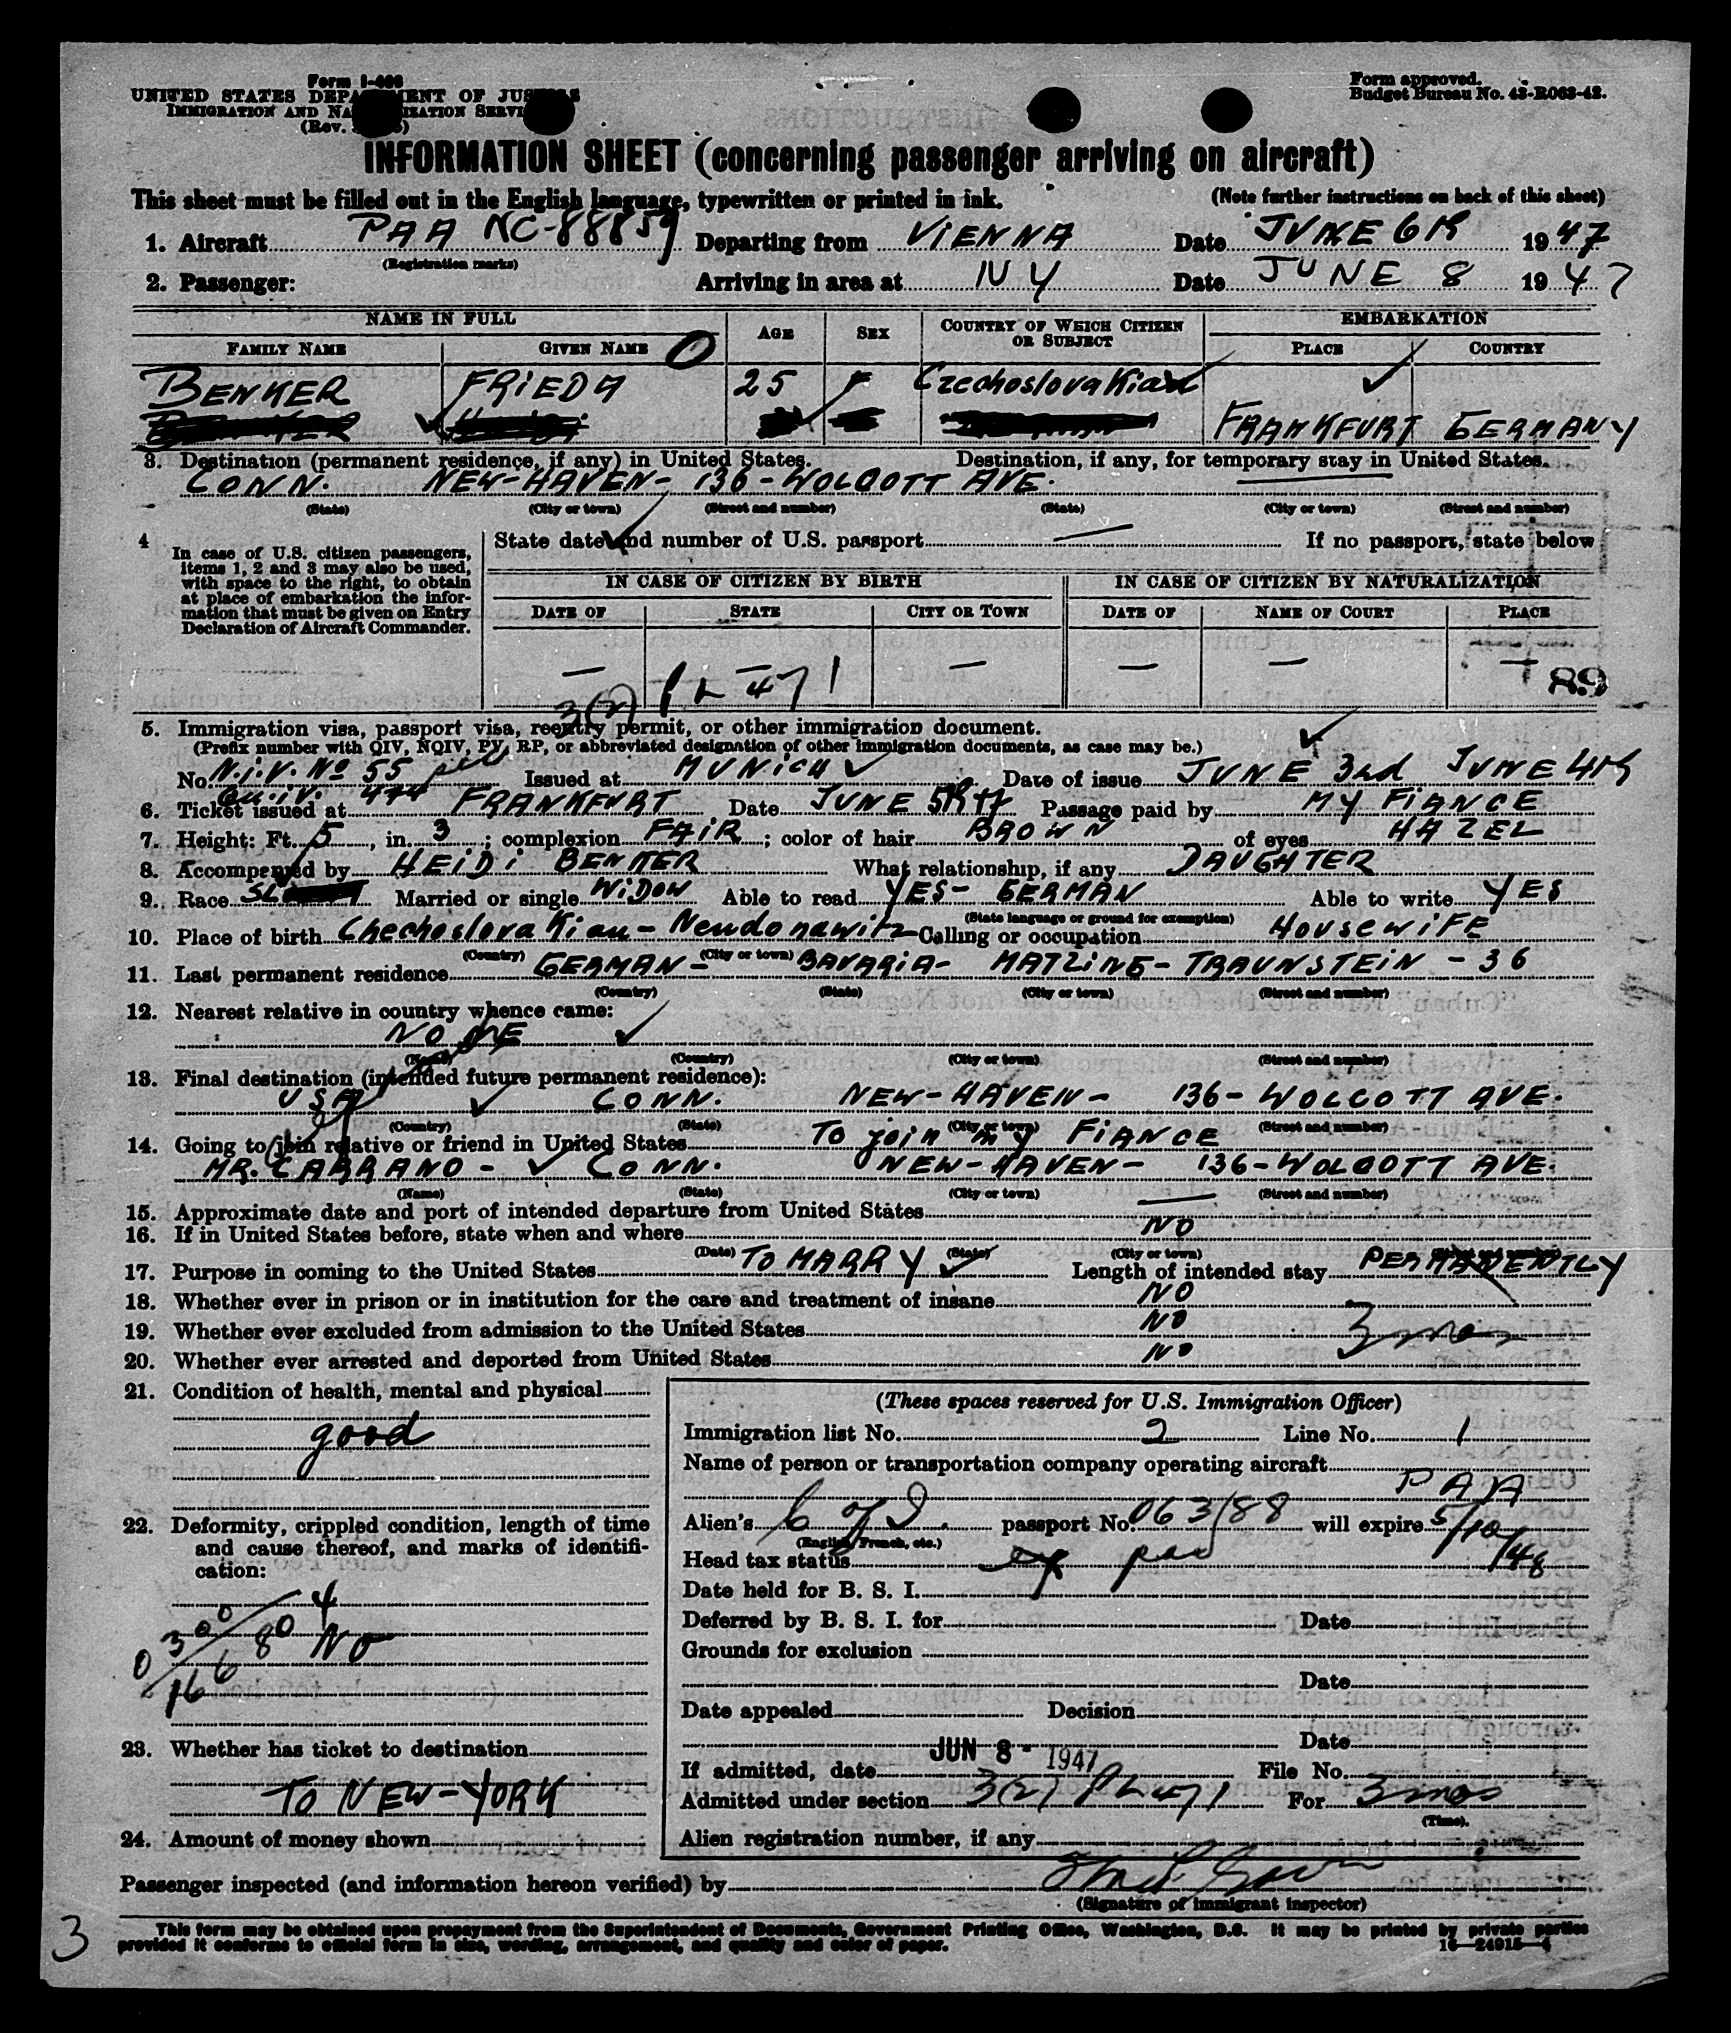 Form I-466
UNITED STATES DEPARTMENT OF JUSTICE
IMMIGRATION AND NATURALIZATION SERVICE
(Rev.
Form approved.
Budget Bureau No. 43-R063-42.
INFORMATION SHEET (concerning passenger arriving on aircraft)
This sheet must be filled out in the English language, typewritten or printed in ink. (Note further instructions on back of this sheet)
1. Aircraft PAA NC-88859 Departing from VIENNA Date JUNE 6th 1947
(Registration marks)
2. Passenger: Arriving in area at NY Date JUNE 8 1947
NAME IN FULL AGE SEX COUNTRY OF WHICH CITIZEN OR SUBJECT EMBARKATION
FAMILY NAME GIVEN NAME PLACE COUNTRY
BENKER FRIEDA 25 F Czechoslovakian
FRANKFURT GERMANY
3. Destination (permanent residence, if any) in United States. Destination, if any, for temporary stay in United States.
CONN. NEW-HAVEN- 136-WOLCOTT AVE.
(State) (City or town) (Street and number) (State) (City or town) (Street and number)
4 In case of U.S. citizen passengers, items 1, 2 and 3 may also be used, with space to the right, to obtain at place of embarkation the information that must be given on Entry Declaration of Aircraft Commander.
State date and number of U.S. passport — If no passport, state below
IN CASE OF CITIZEN BY BIRTH IN CASE OF CITIZEN BY NATURALIZATION
DATE OF STATE CITY OR TOWN DATE OF NAME OF COURT PLACE
— — — — — —
3(2) PL 471
89
5. Immigration visa, passport visa, reentry permit, or other immigration document.
(Prefix number with QIV, NQIV, PV, RP, or abbreviated designation of other immigration documents, as case may be.)
No. N.I.V. No 55 Issued at MUNICH Date of issue JUNE 3rd JUNE 4th
6. Ticket issued at FRANKFURT Date JUNE 5th 47 Passage paid by MY FIANCE
7. Height: Ft. 5, in. 3; complexion FAIR; color of hair BROWN of eyes HAZEL
8. Accompanied by HEIDI BENKER What relationship, if any DAUGHTER
9. Race SL Married or single WIDOW Able to read YES- GERMAN Able to write YES
(State language or ground for exemption)
10. Place of birth Chechoslovakian - Neudonawitz Calling or occupation HOUSEWIFE
(Country) (City or town)
11. Last permanent residence GERMAN- BAVARIA- MATZING- TRAUNSTEIN - 36
(Country) (State) (City or town) (Street and number)
12. Nearest relative in country whence came:
NONE
(Name) (Country) (City or town) (Street and number)
13. Final destination (intended future permanent residence):
USA CONN. NEW-HAVEN- 136-WOLCOTT AVE.
(Country) (State) (City or town) (Street and number)
14. Going to join relative or friend in United States To join my FIANCE
MR. CARRANO- CONN. NEW-HAVEN- 136-WOLCOTT AVE.
(Name) (State) (City or town) (Street and number)
15. Approximate date and port of intended departure from United States —
16. If in United States before, state when and where NO
(Date) (State) (City or town) (Street and number)
17. Purpose in coming to the United States TO MARRY Length of intended stay PERMANENTLY
18. Whether ever in prison or in institution for the care and treatment of insane NO
19. Whether ever excluded from admission to the United States NO 3 mos
20. Whether ever arrested and deported from United States NO
21. Condition of health, mental and physical
good
22. Deformity, crippled condition, length of time and cause thereof, and marks of identification:
NO
23. Whether has ticket to destination
TO NEW-YORK
24. Amount of money shown
(These spaces reserved for U.S. Immigration Officer)
Immigration list No. 2 Line No. 1
Name of person or transportation company operating aircraft
PAA
Alien's passport No. 063/88 will expire 5/10/48
(English, French, etc.)
Head tax status
Date held for B. S. I.
Deferred by B. S. I. for Date
Grounds for exclusion
Date
Date appealed Decision
Date
If admitted, date JUN 8 - 1947 File No.
Admitted under section 3(2) PL 471 For 3 mos
(Time).
Alien registration number, if any
Passenger inspected (and information hereon verified) by
(Signature of immigrant inspector)
This form may be obtained upon prepayment from the Superintendent of Documents, Government Printing Office, Washington, D.C. It may be printed by private parties
provided it conforms to official form in size, wording, arrangement, and quality and color of paper. 16—24915-4
3